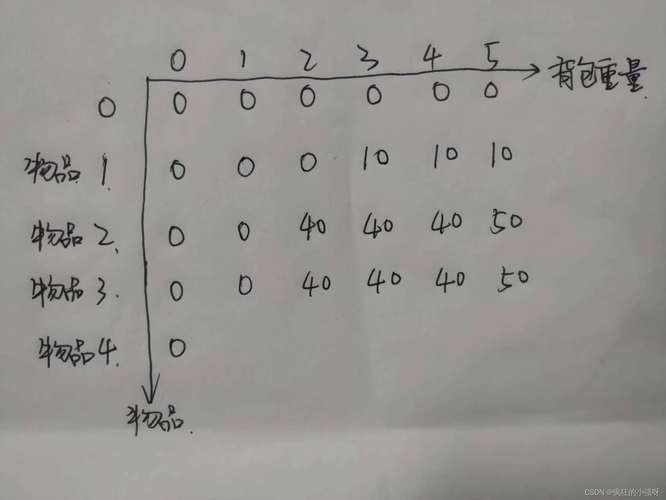 0 1 2 3 4 5 背包重量
0 0 0 0 0 0 0
物品1 0 0 0 10 10 10
物品2. 0 0 40 40 40 50
物品3. 0 0 40 40 40 50
物品4. 0
物品.
CSDN @疯狂的小强呀